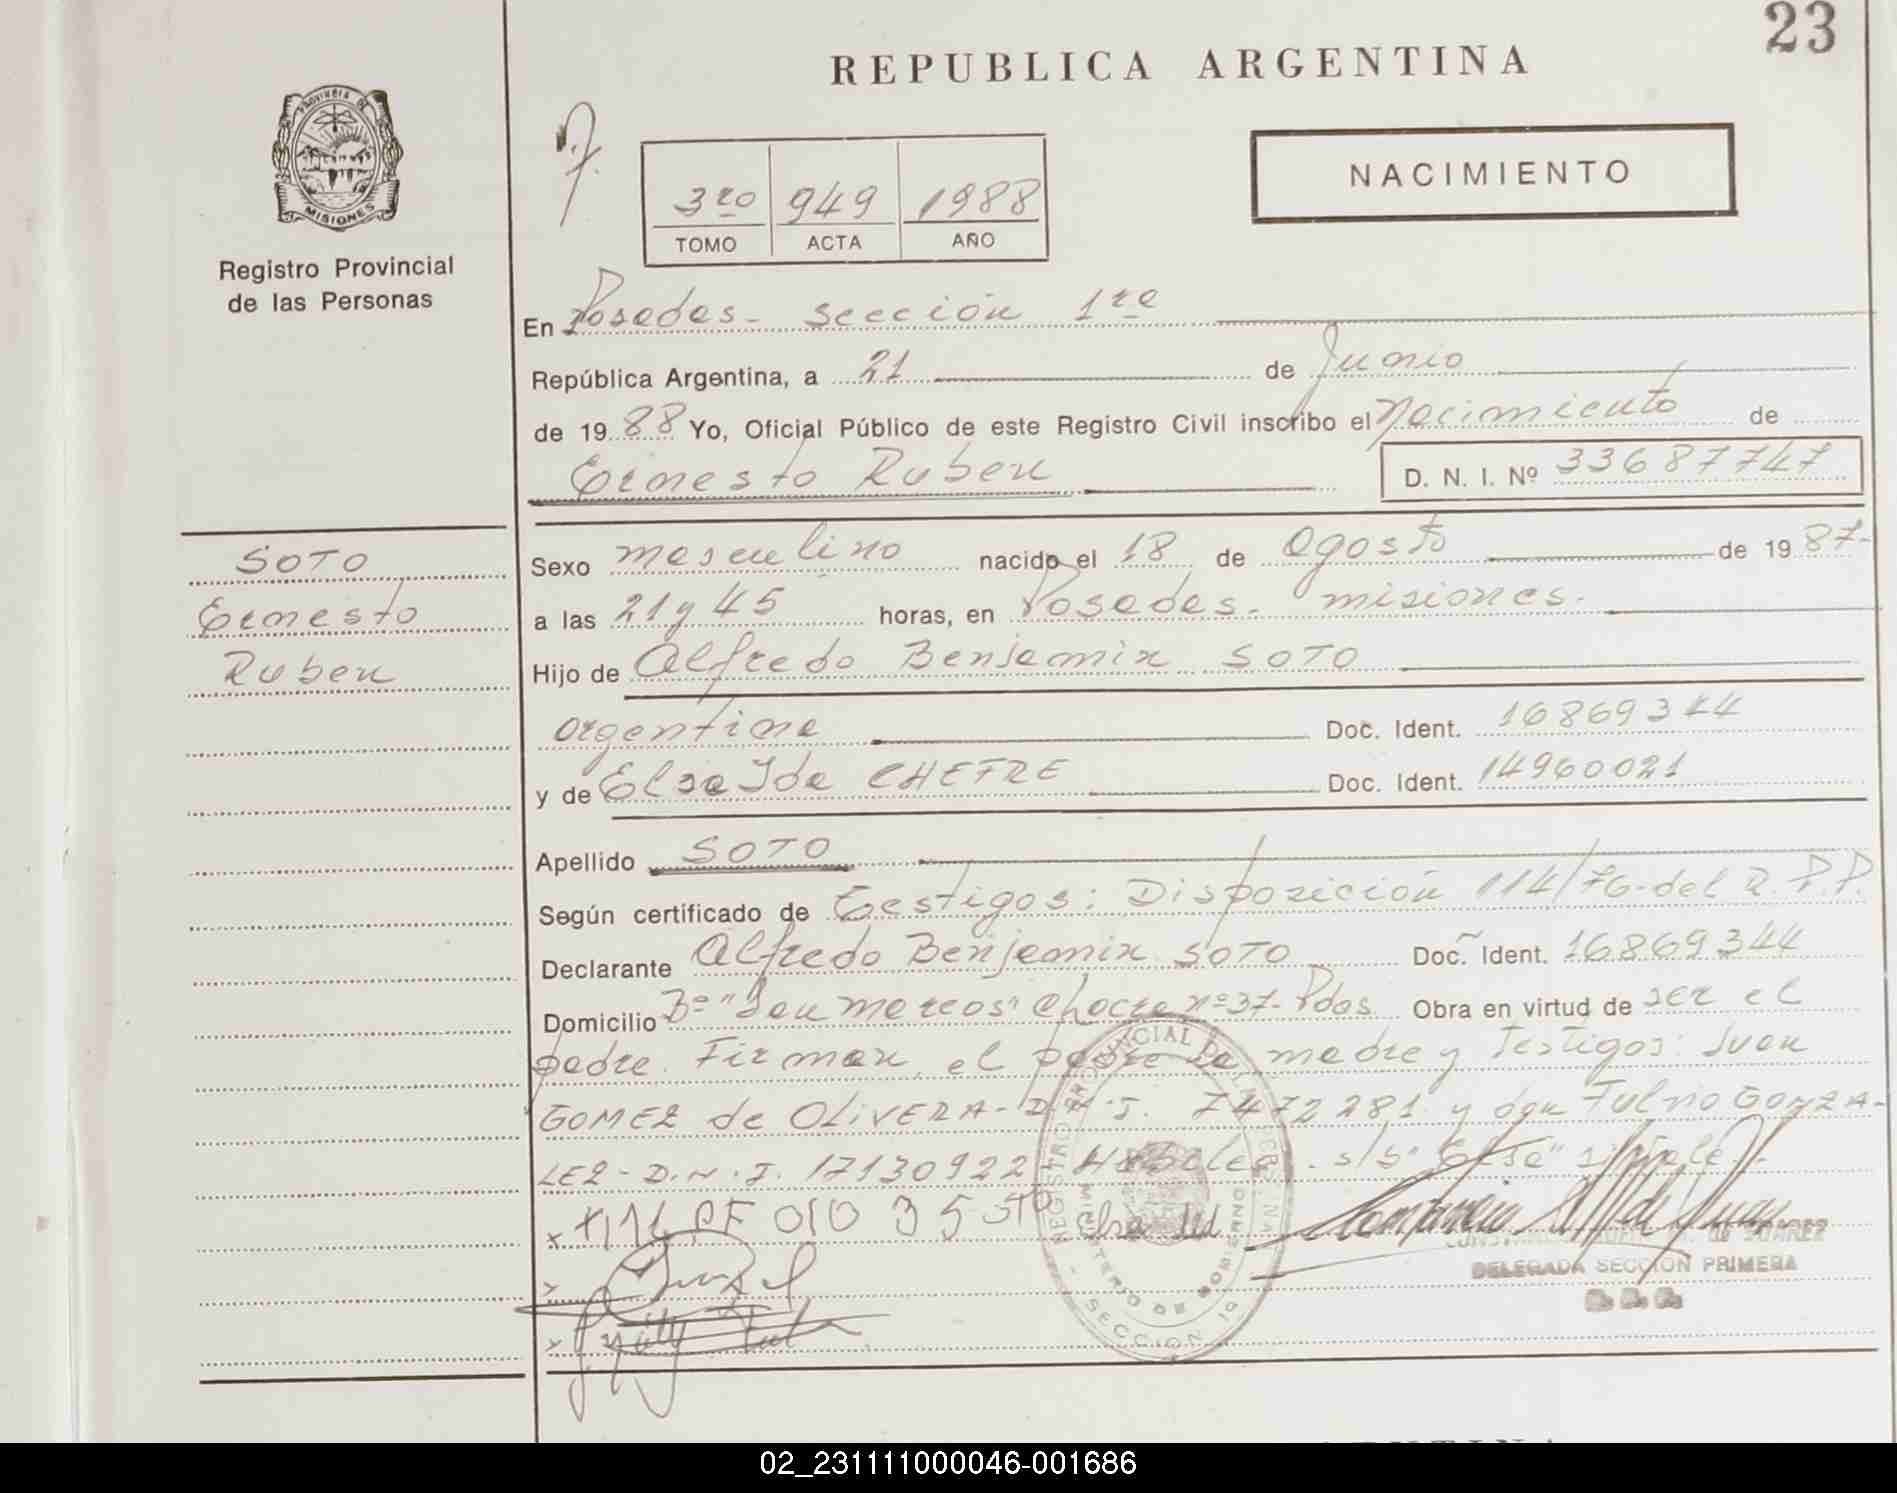 23
REPUBLICA ARGENTINA
PROVINCIA DE
MISIONES
Registro Provincial
de las Personas
3ro 949 1988
TOMO ACTA AÑO
NACIMIENTO
En Posadas - sección 1ra
República Argentina, a 21 de Junio
de 1988 Yo, Oficial Público de este Registro Civil inscribo el Nacimiento de
Ernesto Ruben D. N. I. Nº 33687747
SOTO
Ernesto
Ruben
Sexo masculino nacido el 18 de Agosto de 1987-
a las 21 y 45 horas, en Posadas - misiones -
Hijo de Alfredo Benjamin SOTO
argentina Doc. Ident. 16869344
y de Elsa Ida CHEFRE Doc. Ident. 14960021
Apellido SOTO
Según certificado de Testigos: Disposición 114/76-del R.P.P.
Declarante Alfredo Benjamin SOTO Doc. Ident. 16869344
Domicilio Bº "San Marcos" chacra nº 37- Pdas Obra en virtud de ser el
padre. Firman, el padre la madre y testigos: Juan
GOMEZ de OLIVERA - D.N.I. 7472281 y don Fulvio GONZA-
LEZ - D.N.I. 17130922 Hábiles. s/b "Este" si vale -
Elsa Ida
REGISTRO PROVINCIAL DE LAS PERSONAS
MINISTERIO DE GOBIERNO
SECCION 1a
DE SUAREZ
DELEGADA SECCION PRIMERA
R. P. P.
02_231111000046-001686